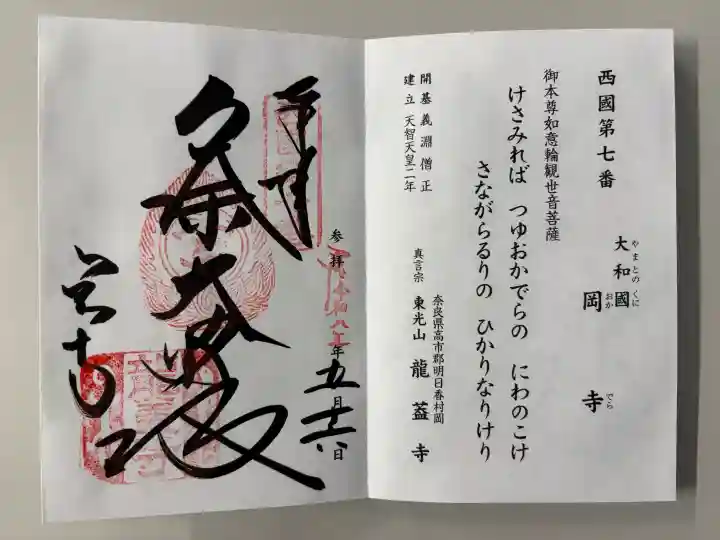 西國第七番
大和國
やまとの くに
岡寺
おか でら
御本尊如意輪観世音菩薩
けさみれば つゆおかでらの にわのこけ
さながらるりの ひかりなりけり
開基義淵僧正
建立 天智天皇二年
奈良県高市郡明日香村岡
真言宗 東光山 龍蓋寺
奉拝
参拝 令和八年五月十六日
大悲殿
岡寺